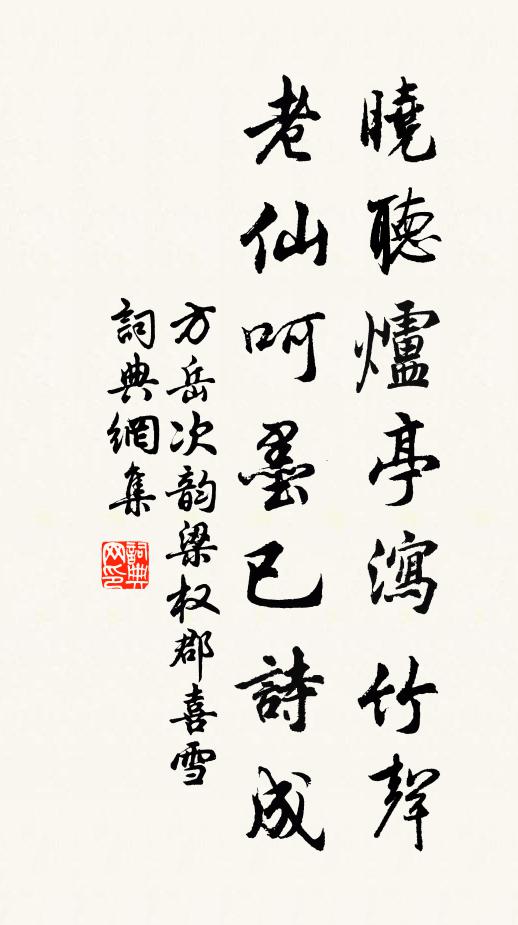 曉聽爐亭瀉竹聲
老仙呵墨已詩成
方岳次韵梁权郡喜雪
詞典網集
詞典网印